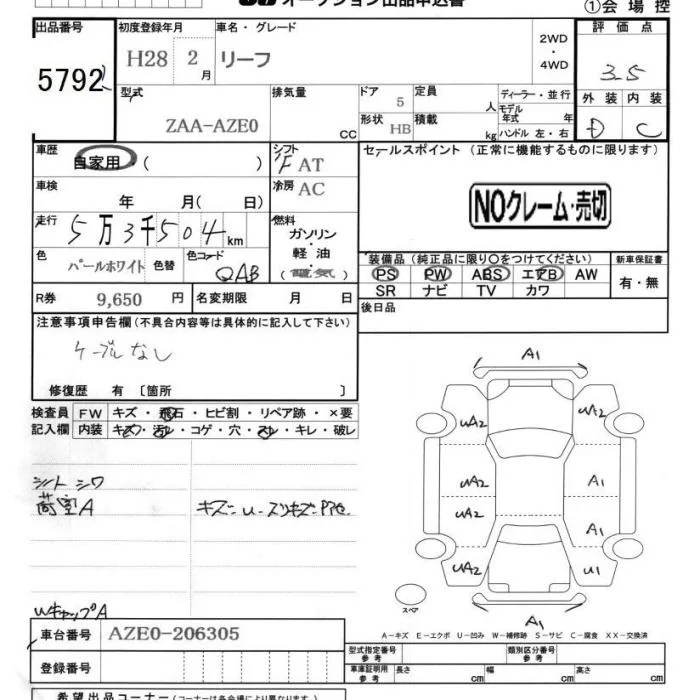 オークション出品申込書
①会場控
出品番号 初度登録年月 車名・グレード 2WD・4WD 評価点
5792 H28 2月 リーフ 3.5
型式 排気量 ドア 定員 ディーラー・並行 外装 内装
ZAA-AZE0 cc 5 人 モデル年式 年 D C
形状 積載
HB kg ハンドル 左・右
車歴 シフト セールスポイント (正常に機能するものに限ります)
自家用・( ) F AT
車検 冷房 AC
年 月( 日) NOクレーム・売切
走行 燃料
5万3千504km ガソリン・軽油・(電気)
色 色替 色コード 装備品 (純正品に限り○をつけてください) 新車保証書
パールホワイト QAB PS PW ABS エアB AW 有・無
SR ナビ TV カワ
R券 9,650 円 名変期限 月 日 後日品
注意事項申告欄(不具合内容等は具体的に記入して下さい)
ケーブルなし
修復歴 有 〔箇所 〕
検査員 FW キズ・飛石・ヒビ割・リペア跡・×要
記入欄 内装 キズ・汚レ・コゲ・穴・スレ・キレ・破レ
シートシワ
荷室A
A1
UA2 UA2
UA2 A1
UA2 A1
UA2 U1
A1
スペア
WキャップA
A-キズ E-エクボ U-凹み W-補修跡 S-サビ C-腐食 XX-交換済
車台番号 AZE0-206305
登録番号
型式指定番号 参考 類別区分番号 参考
車庫証明用 参考 長さ cm 幅 cm 高さ cm
希望出品コーナー(コーナーは各会場により異なります)